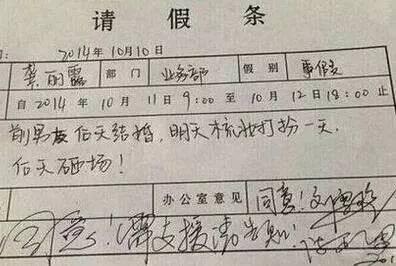 请 假 条
: 2014年10月10日
龚丽霞 部门 业务部 假别 事假
自2014年10月11日9:00至10月12日18:00止
前男友后天结婚，明天梳妆打扮一天，
后天砸场！
办公室意见 同意！
同意！需支援请告知！